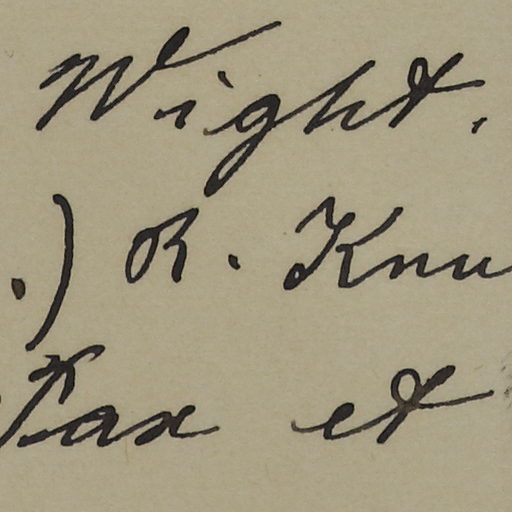 Wight.
.) R. Knu
Pax et